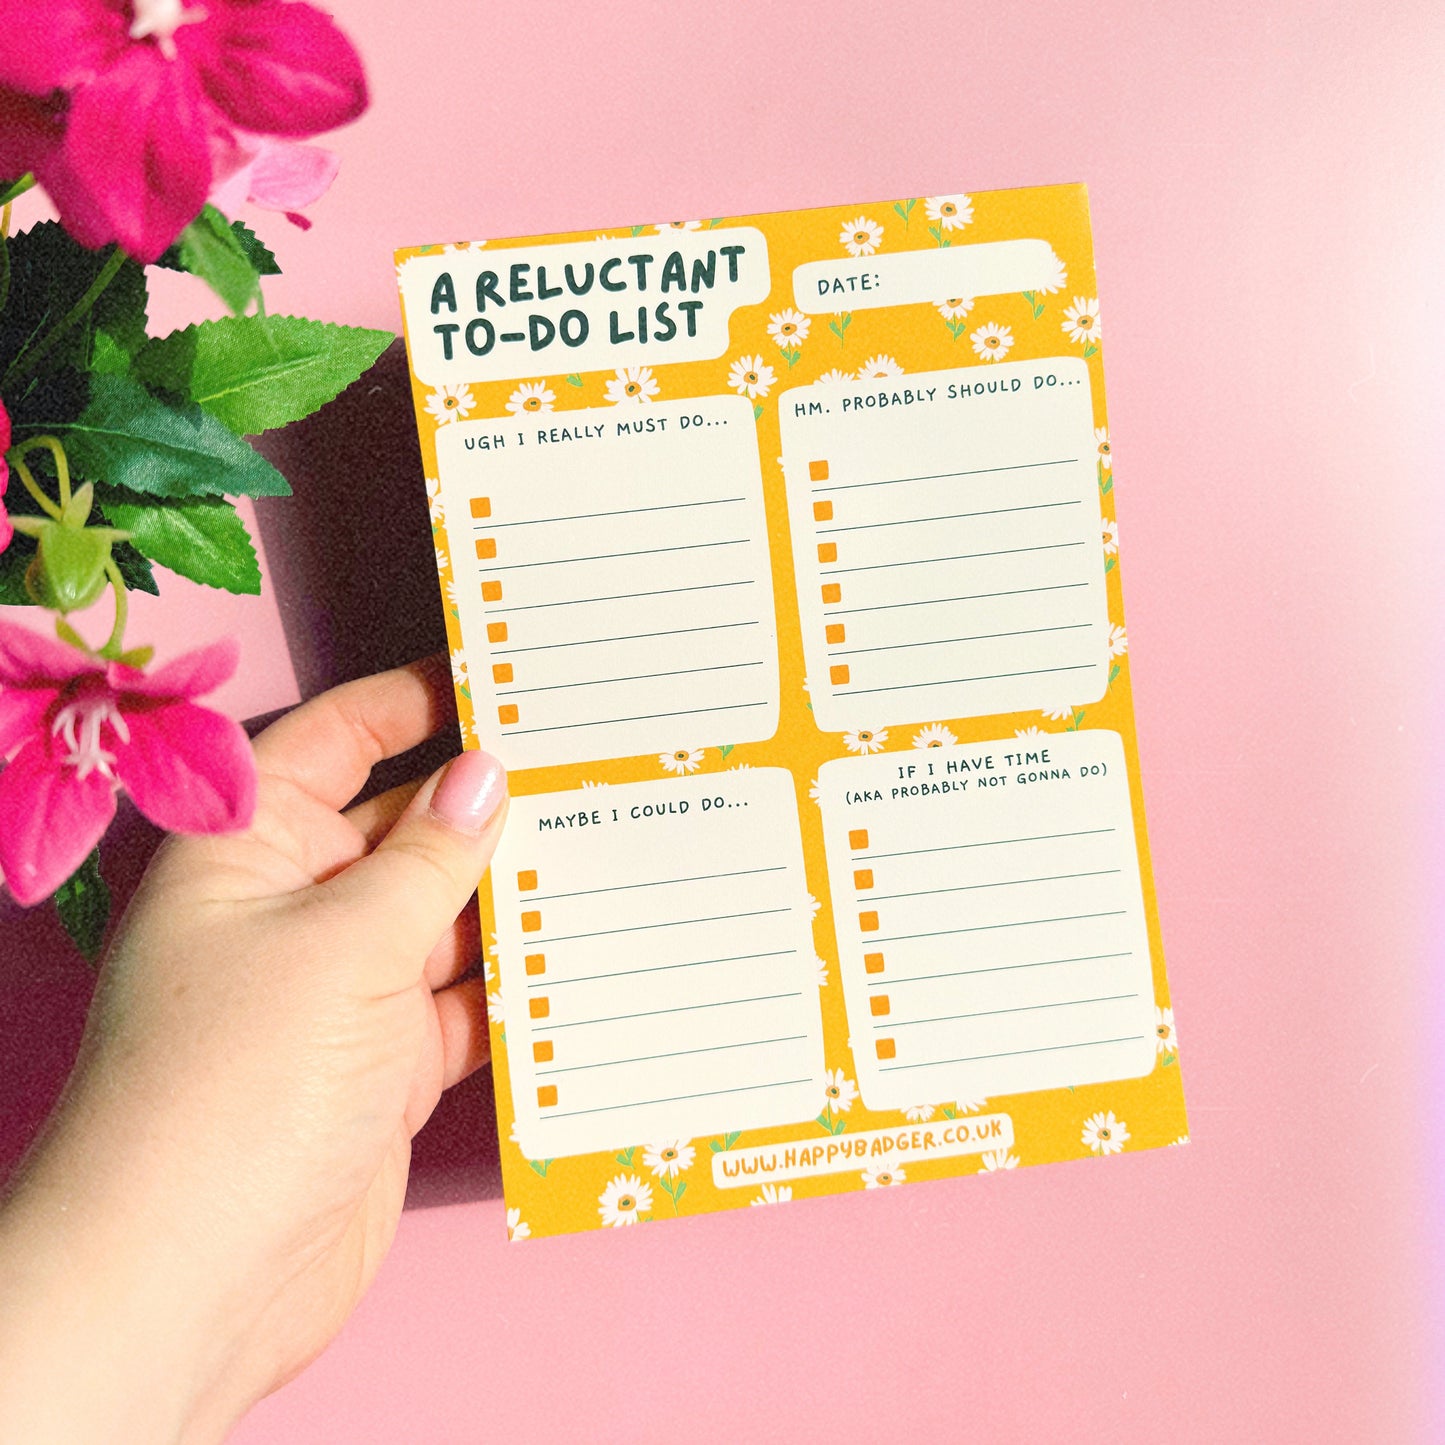 A RELUCTANT
TO-DO LIST
DATE:
UGH I REALLY MUST DO...
HM. PROBABLY SHOULD DO...
MAYBE I COULD DO...
IF I HAVE TIME
(AKA PROBABLY NOT GONNA DO)
WWW.HAPPYBADGER.CO.UK